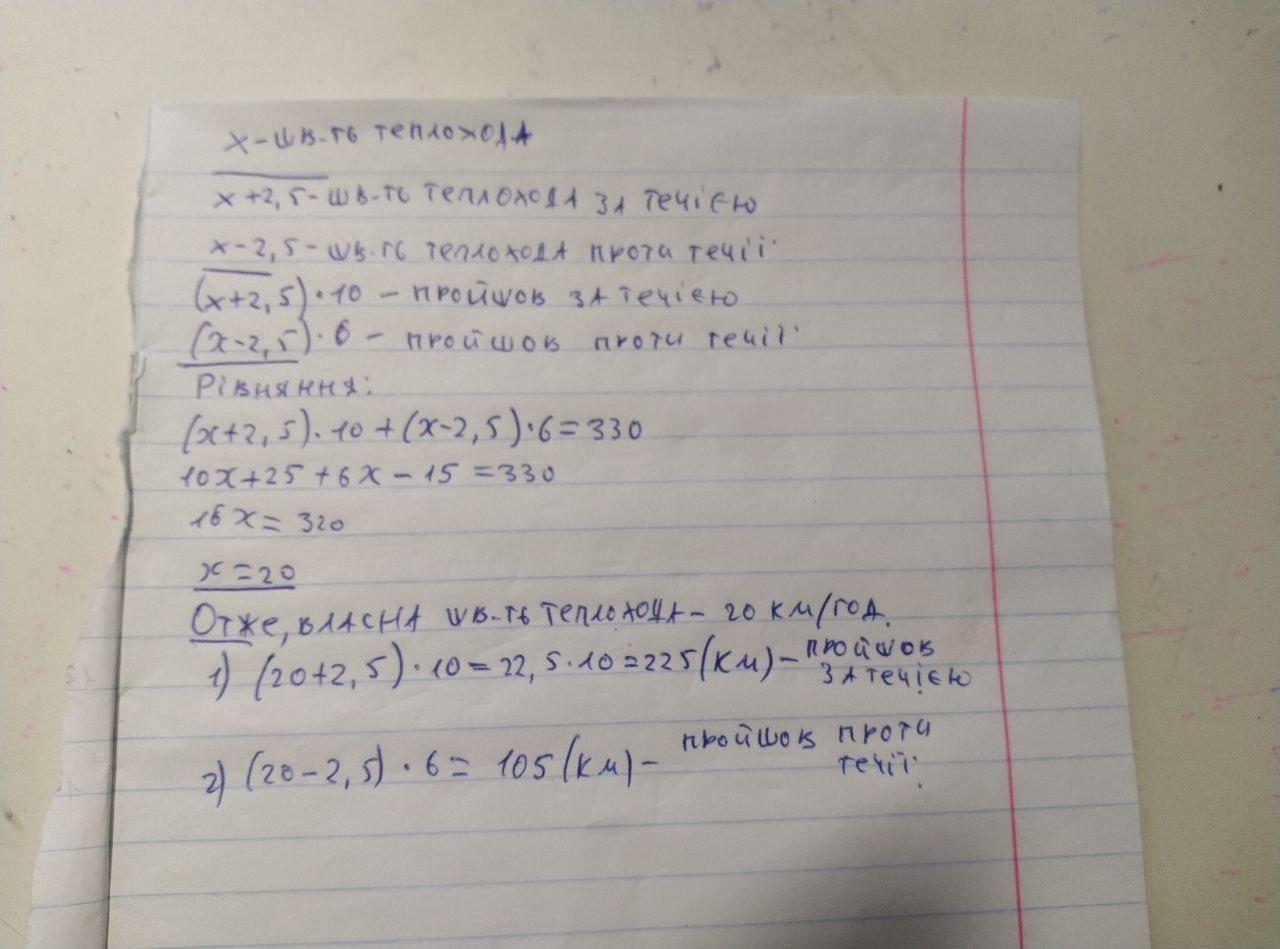 х-шв-ть теплохода
х+2,5-шв-ть теплохода за течією
х-2,5-шв-ть теплохода проти течії
(х+2,5)·10 - пройшов за течією
(х-2,5)·6 - пройшов проти течії
Рівняння:
(х+2,5)·10+(х-2,5)·6=330
10х+25+6х-15=330
16х=320
х=20
Отже, власна шв-ть теплохода - 20 км/год.
1) (20+2,5)·10=22,5·10=225(км)-пройшов
за течією
2) (20-2,5)·6= 105(км)- пройшов проти
течії.